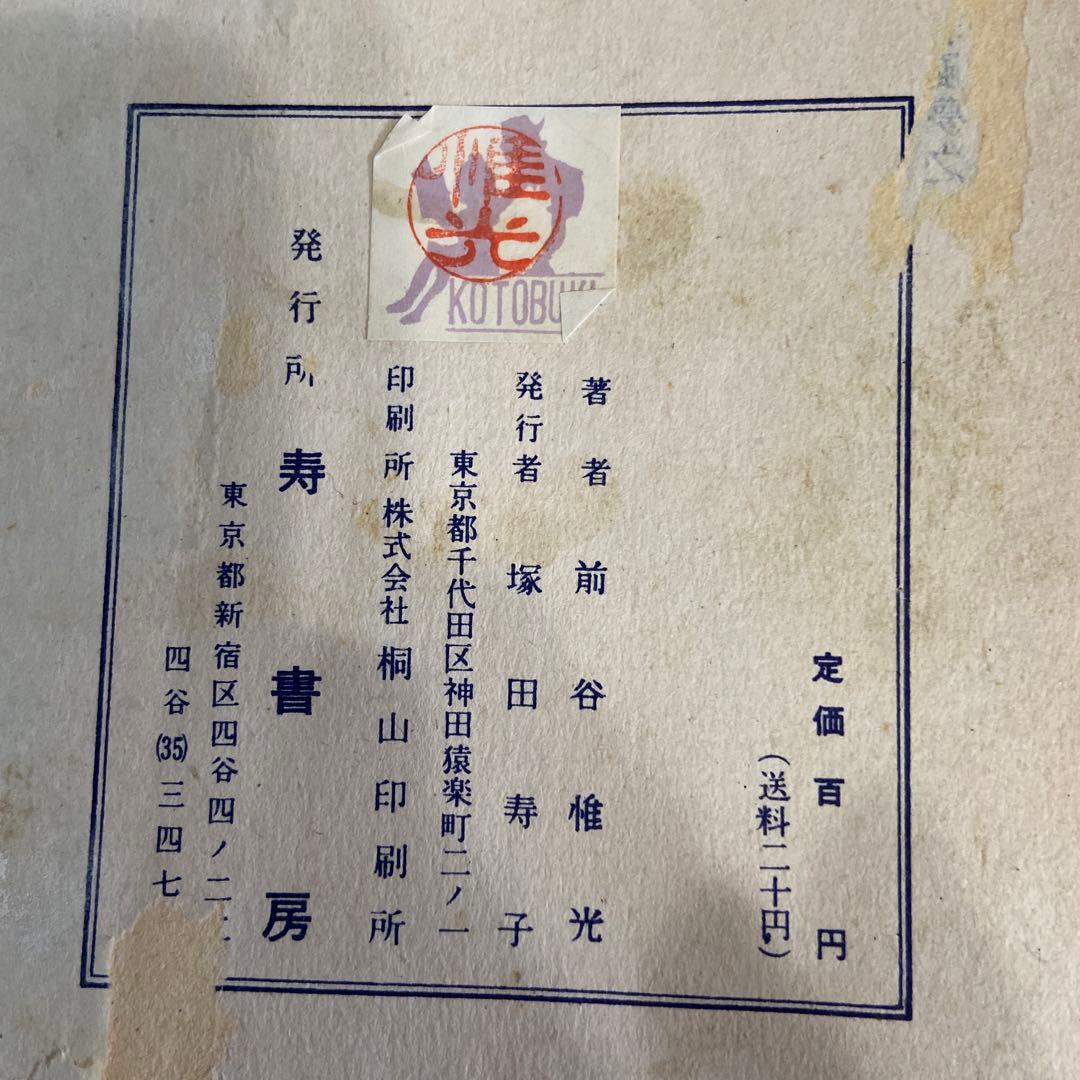 定価百円
（送料二十円）
著者 前谷惟光
発行者 塚田寿子
東京都千代田区神田猿楽町二ノ一
印刷所 株式会社 桐山印刷所
発行所 寿書房
東京都新宿区四谷四ノ二
四谷(35)三四七
惟光
KOTOBUKI